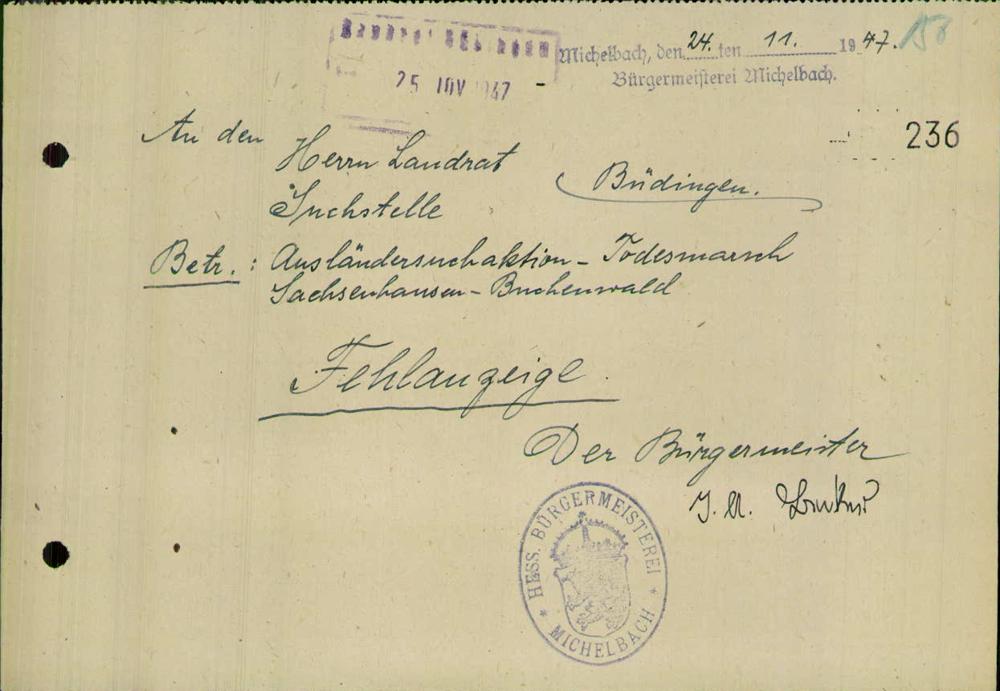 25 NOV 1947
Michelbach, den 24. ten 11. 1947.
Bürgermeisterei Michelbach.
236
An den
Herrn Landrat
Suchstelle
Büdingen.
Betr.: Ausländersuchaktion - Todesmarsch
Sachsenhausen - Buchenwald
Fehlanzeige.
Der Bürgermeister
HESS. BÜRGERMEISTEREI
* MICHELBACH *